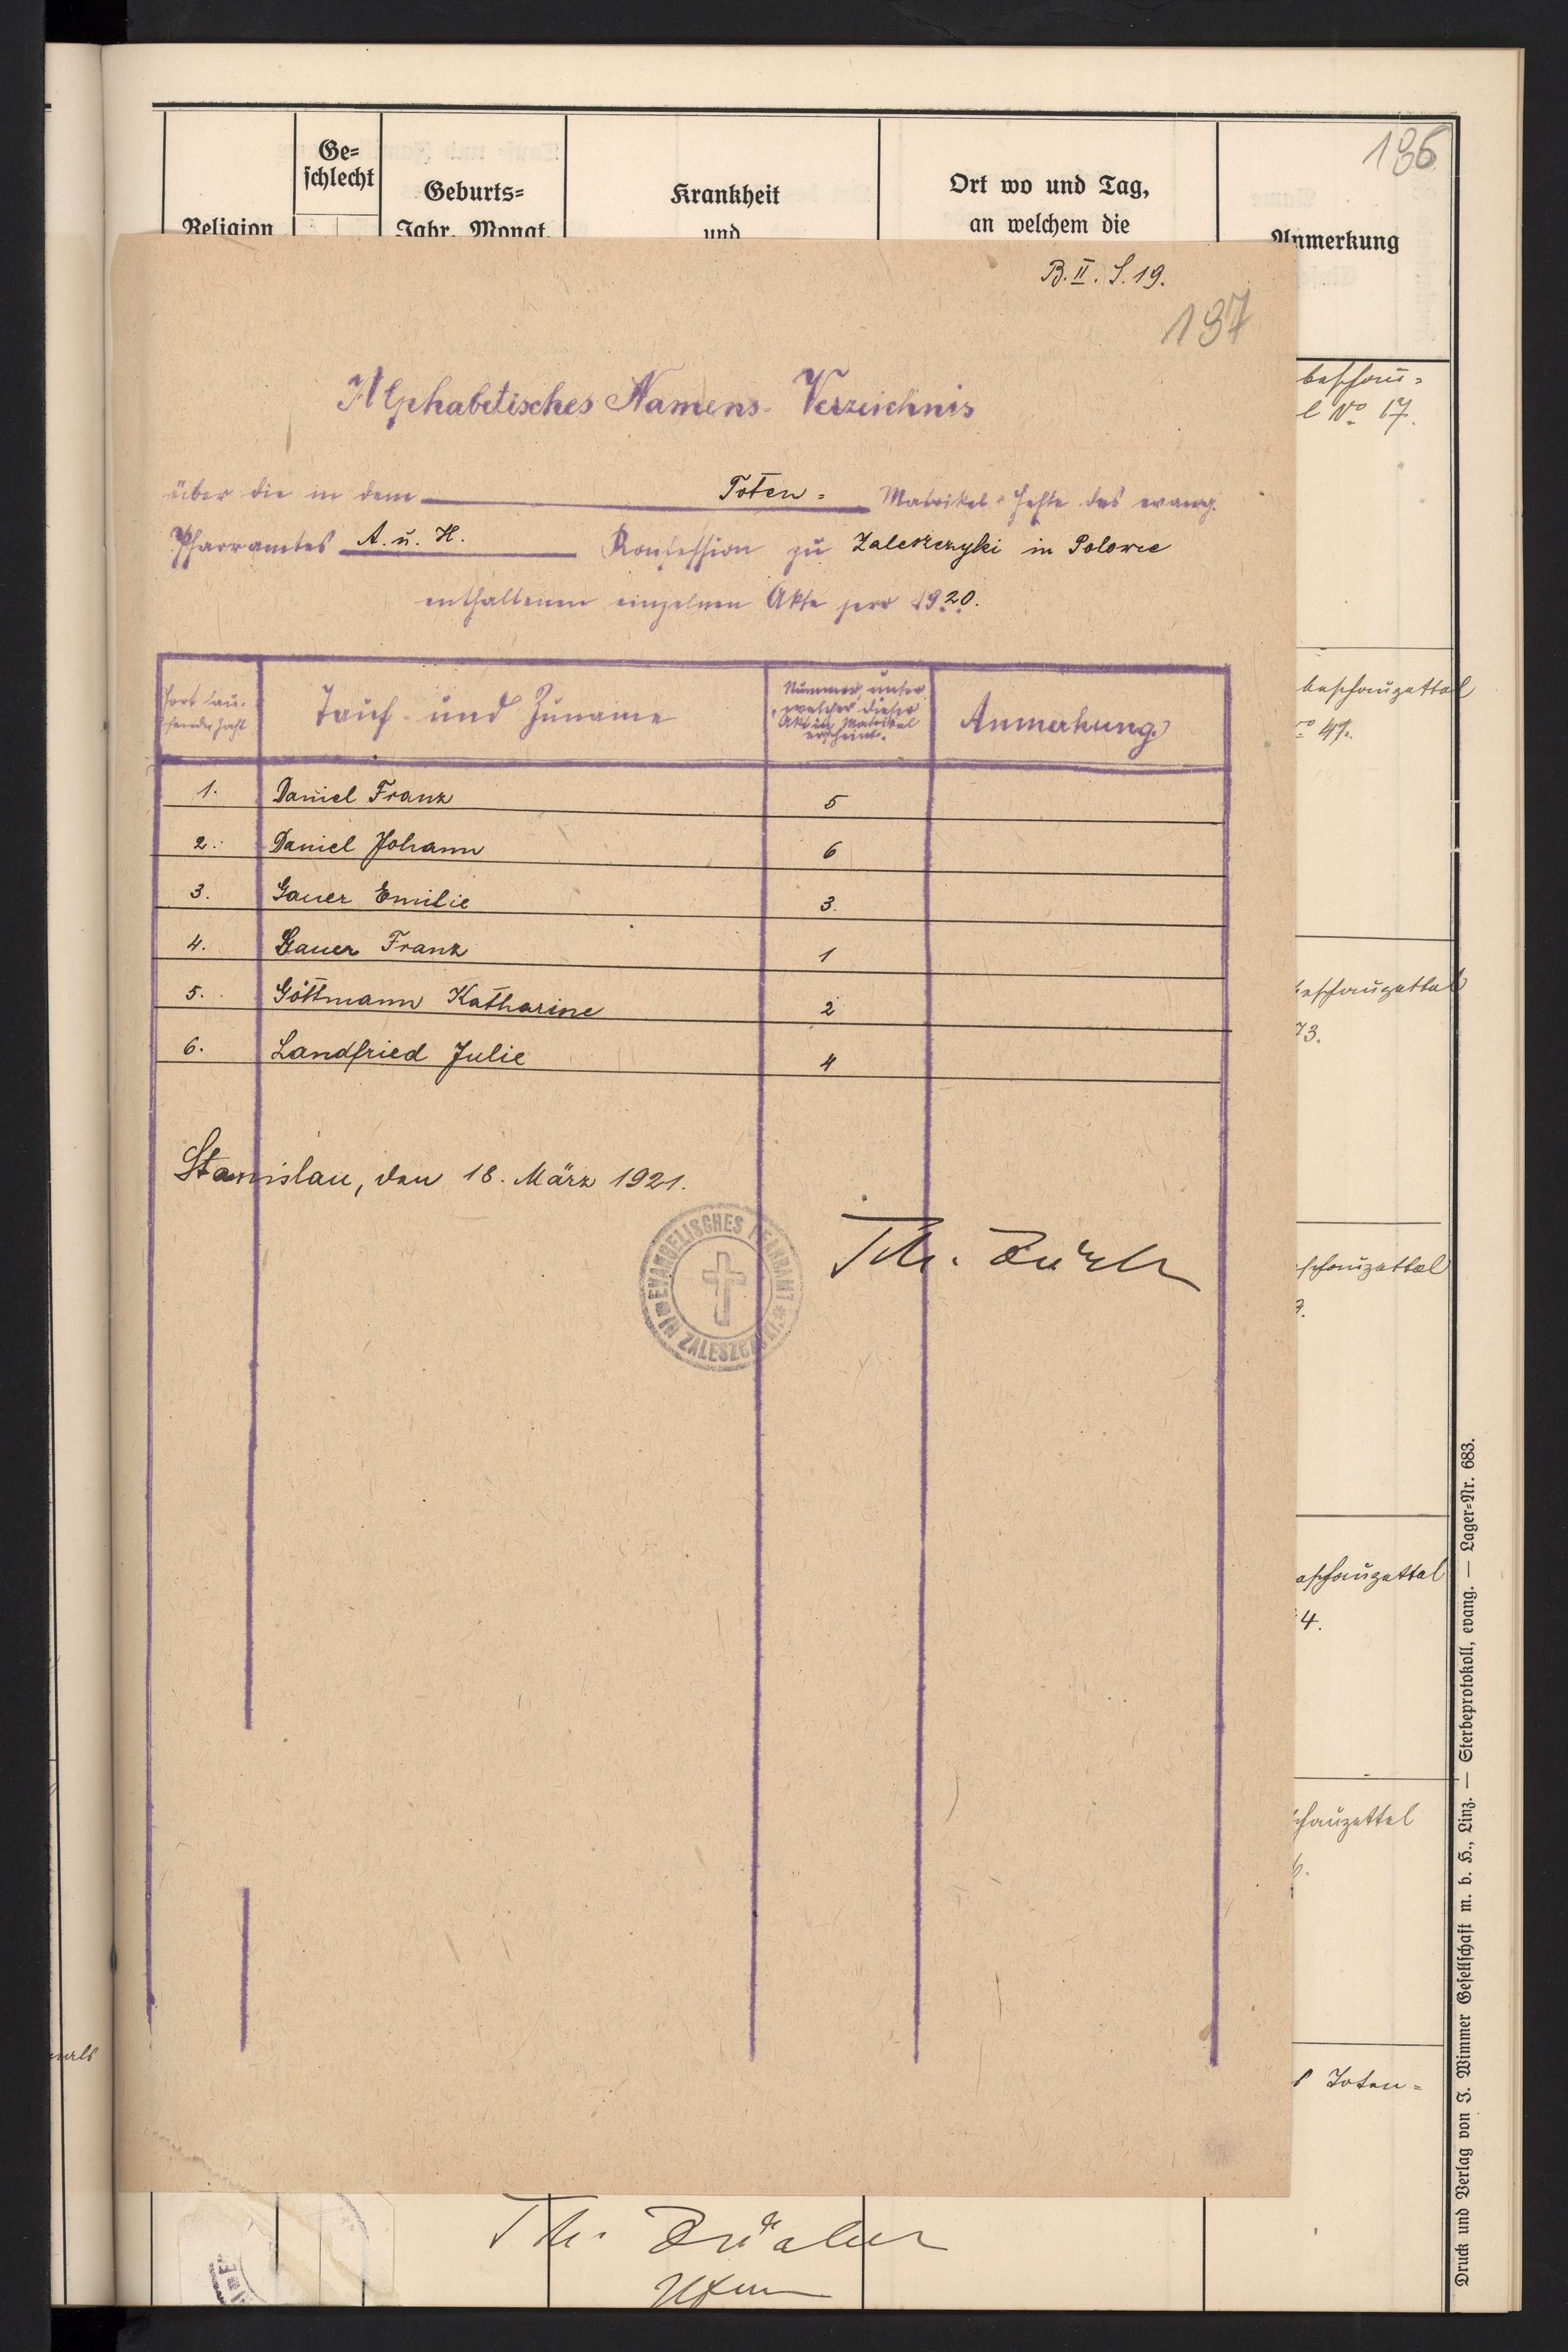 186
Religion
Ge=
schlecht
Geburts=
Jahr, Monat,
Krankheit
und
Ort wo und Tag,
an welchem die
Anmerkung
B. II. S. 19.
187
Alphabetisches Namens-Verzeichnis
über die in dem Toten= Matrikel-Hefte des evang.
Pfarramtes A. u. H. Konfession zu Zaleszczyki in Polowce
enthaltenen einzelnen Akte pro 1920.
Fortlau-
fende Zahl
Tauf- und Zuname
Nummer, unter
welcher dieser
Akt in Matrikel
erscheint.
Anmerkung
1. Daniel Franz 5
2. Daniel Johann 6
3. Gauer Emilie 3.
4. Gauer Franz 1
5. Göttmann Katharine 2
6. Landfried Julie 4
Stanislau, den 18. März 1921.
EVANGELISCHES PFARRAMT
IN ZALESZCZYKI
beschau=
l No 17.
beschauzettel
o 47.
eschauzettel
73.
schauzettel
9.
eschauzettel
4.
chauzettel
6.
Toten=
Th.
Druck und Verlag von J. Wimmer Gesellschaft m. b. H., Linz. — Sterbeprotokoll, evang. — Lager=Nr. 683.